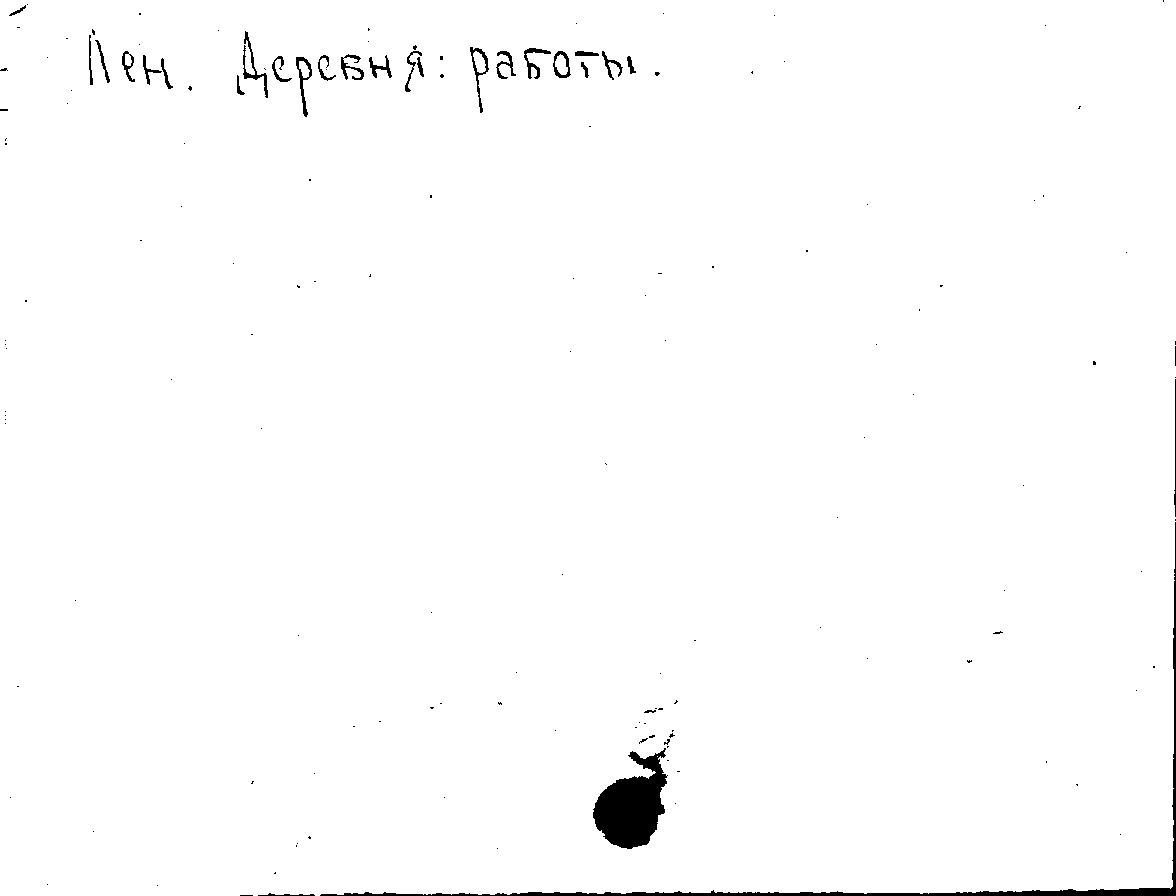 Лен. Деревня: работы.